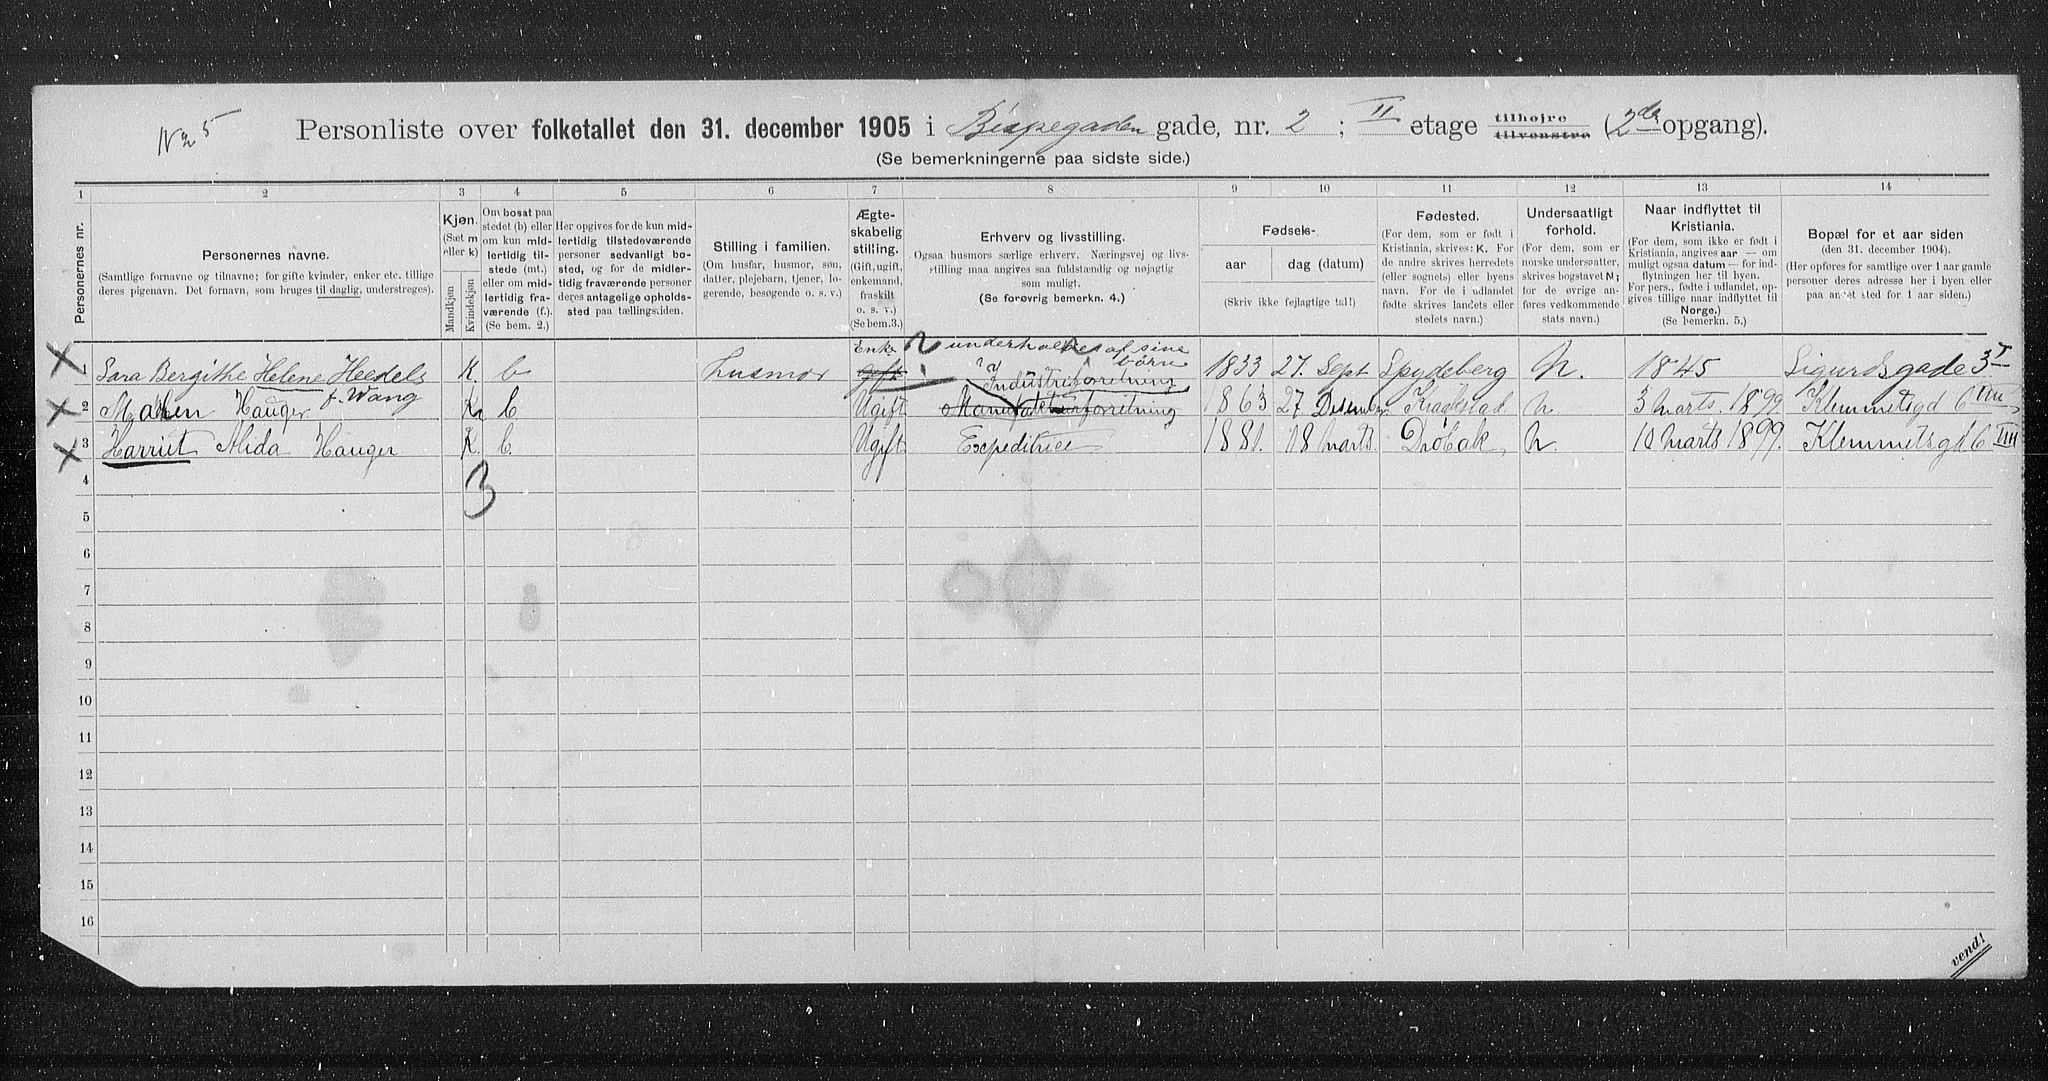 No 5 Personliste over folketallet den 31. december 1905 i Bispegaden gade, nr. 2 ; II etage tilhøjre tilvenstre (2den opgang).
(Se bemerkningerne paa sidste side.)
1 2 3 4 5 6 7 8 9 10 11 12 13 14
Personernes nr.
Personernes navne.
(Samtlige fornavne og tilnavne; for gifte kvinder, enker etc. tillige
deres pigenavn. Det fornavn, som bruges til daglig, understreges).
Kjøn.
(Sæt m
eller k)
Mandkjøn
Kvindekjøn
Om bosat paa
stedet (b) eller
om kun mid-
lertidig til-
stede (mt.)
eller om mid-
lertidig fra-
værende (f.).
(Se bem. 2.)
Her opgives for de kun mid-
lertidig tilstedeværende
personer sedvanligt bo-
sted, og for de midler-
tidig fraværende personer
deres antagelige opholds-
sted paa tællingstiden.
Stilling i familien.
(Om husfar, husmor, søn,
datter, plejebarn, tjener, lo-
gerende, besøgende o. s. v.)
Ægte-
skabelig
stilling.
(Gift, ugift,
enkemand,
fraskilt
o. s. v.)
(Se bem.3.)
Erhverv og livsstilling.
Ogsaa husmors særlige erhverv. Næringsvej og livs-
stilling maa angives saa fuldstændig og nøjagtig
som muligt.
(Se forøvrig bemerkn. 4.)
Fødsels-
aar
dag (datum)
(Skriv ikke fejlagtige tal!)
Fødested.
(For dem, som er født i
Kristiania, skrives: K. For
de andre skrives herredets
(eller sognets) eller byens
navn. For de i udlandet
fødte skrives landets eller
stedets navn.)
Undersaatligt
forhold.
(For dem, som er
norske undersaatter,
skrives bogstavet N;
for de øvrige an-
føres vedkommende
stats navn.)
Naar indflyttet til
Kristiania.
(For dem, som ikke er født i
Kristiania, angives aar — om
muligt ogsaa datum — for ind-
flytningen her til byen.
For pers., fødte i udlandet, op-
gives tillige naar indflyttet til
Norge.)
(Se bemerkn. 5.)
Bopæl for et aar siden
(den 31. december 1904).
(Her opføres for samtlige over 1 aar gamle
personer deres adresse her i byen eller
paa andet sted for 1 aar siden.)
Enke underholdes af sine
børn
1 Sara Bergithe Helene Heedels K. b husmor gift 1833 27. Sept Spydeberg N. 1845 Sigurdsgade 3 I
f. Wang Industriforretning
2 Malen Hauger K b Ugift Manufakturforretning 1863 27 Desember Kraakstad N 3 Marts. 1899 Klemmetsgd 6 IIII
3 Harriet Alida Hauger K b. Ugift Expeditrice 1881. 18 Marts. Drøbak, N. 10 Marts 1899. Klemmetsgd 6 IIII
3
4
5
6
7
8
9
10
11
12
13
14
15
16
vend!